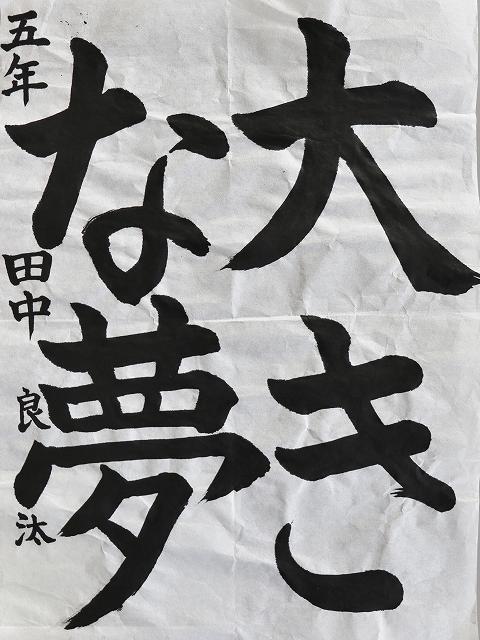 大き
な夢
五年 田中 良汰